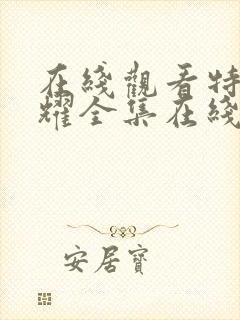 在綫觀看特
耀全集在綫
安居寶